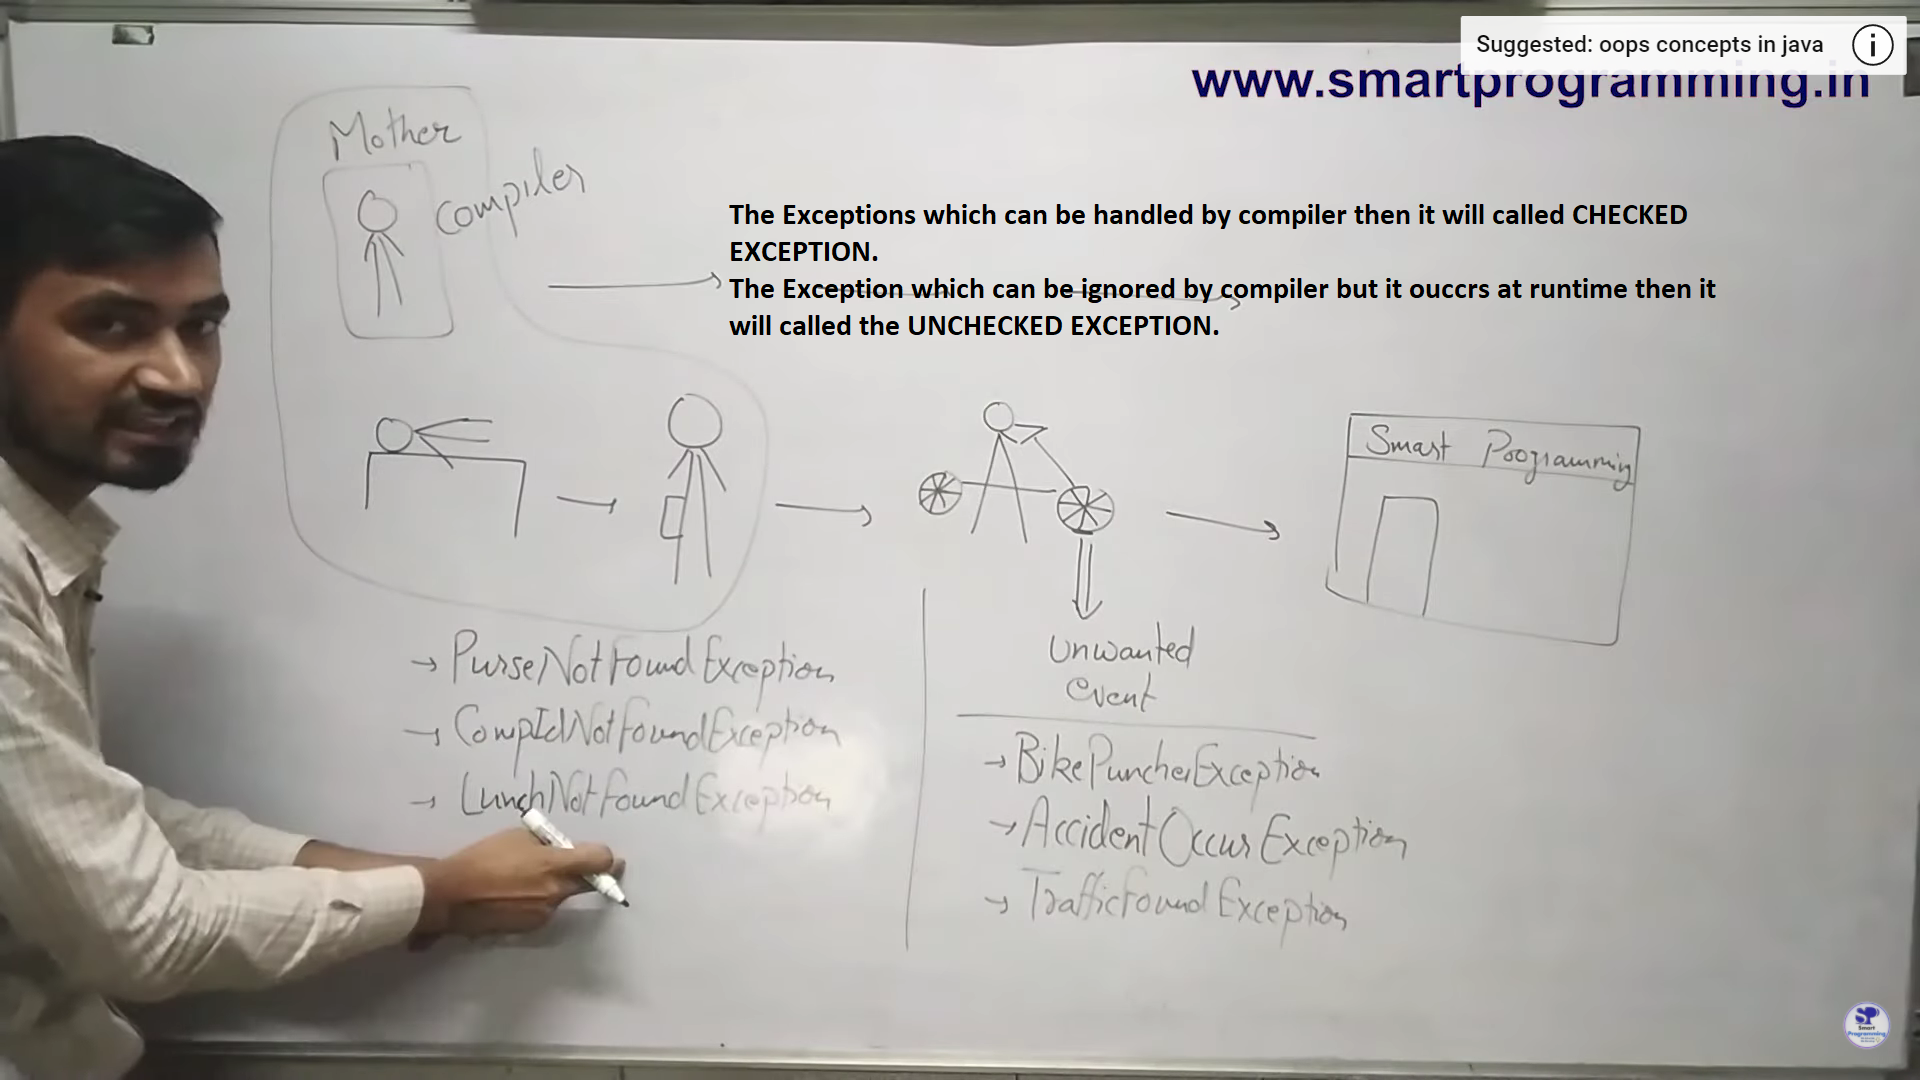 Suggested: oops concepts in java
www.smartprogramming.in
Mother
Compiler
The Exceptions which can be handled by compiler then it will called CHECKED
EXCEPTION.
The Exception which can be ignored by compiler but it ouccrs at runtime then it
will called the UNCHECKED EXCEPTION.
Smart Programming
→ PurseNotFoundException
→ CompIdNotFoundException
→ LunchNotFoundException
Unwanted
event
→ BikePuncherException
→ AccidentOccurException
→ TrafficFoundException
SP
Smart
Programming